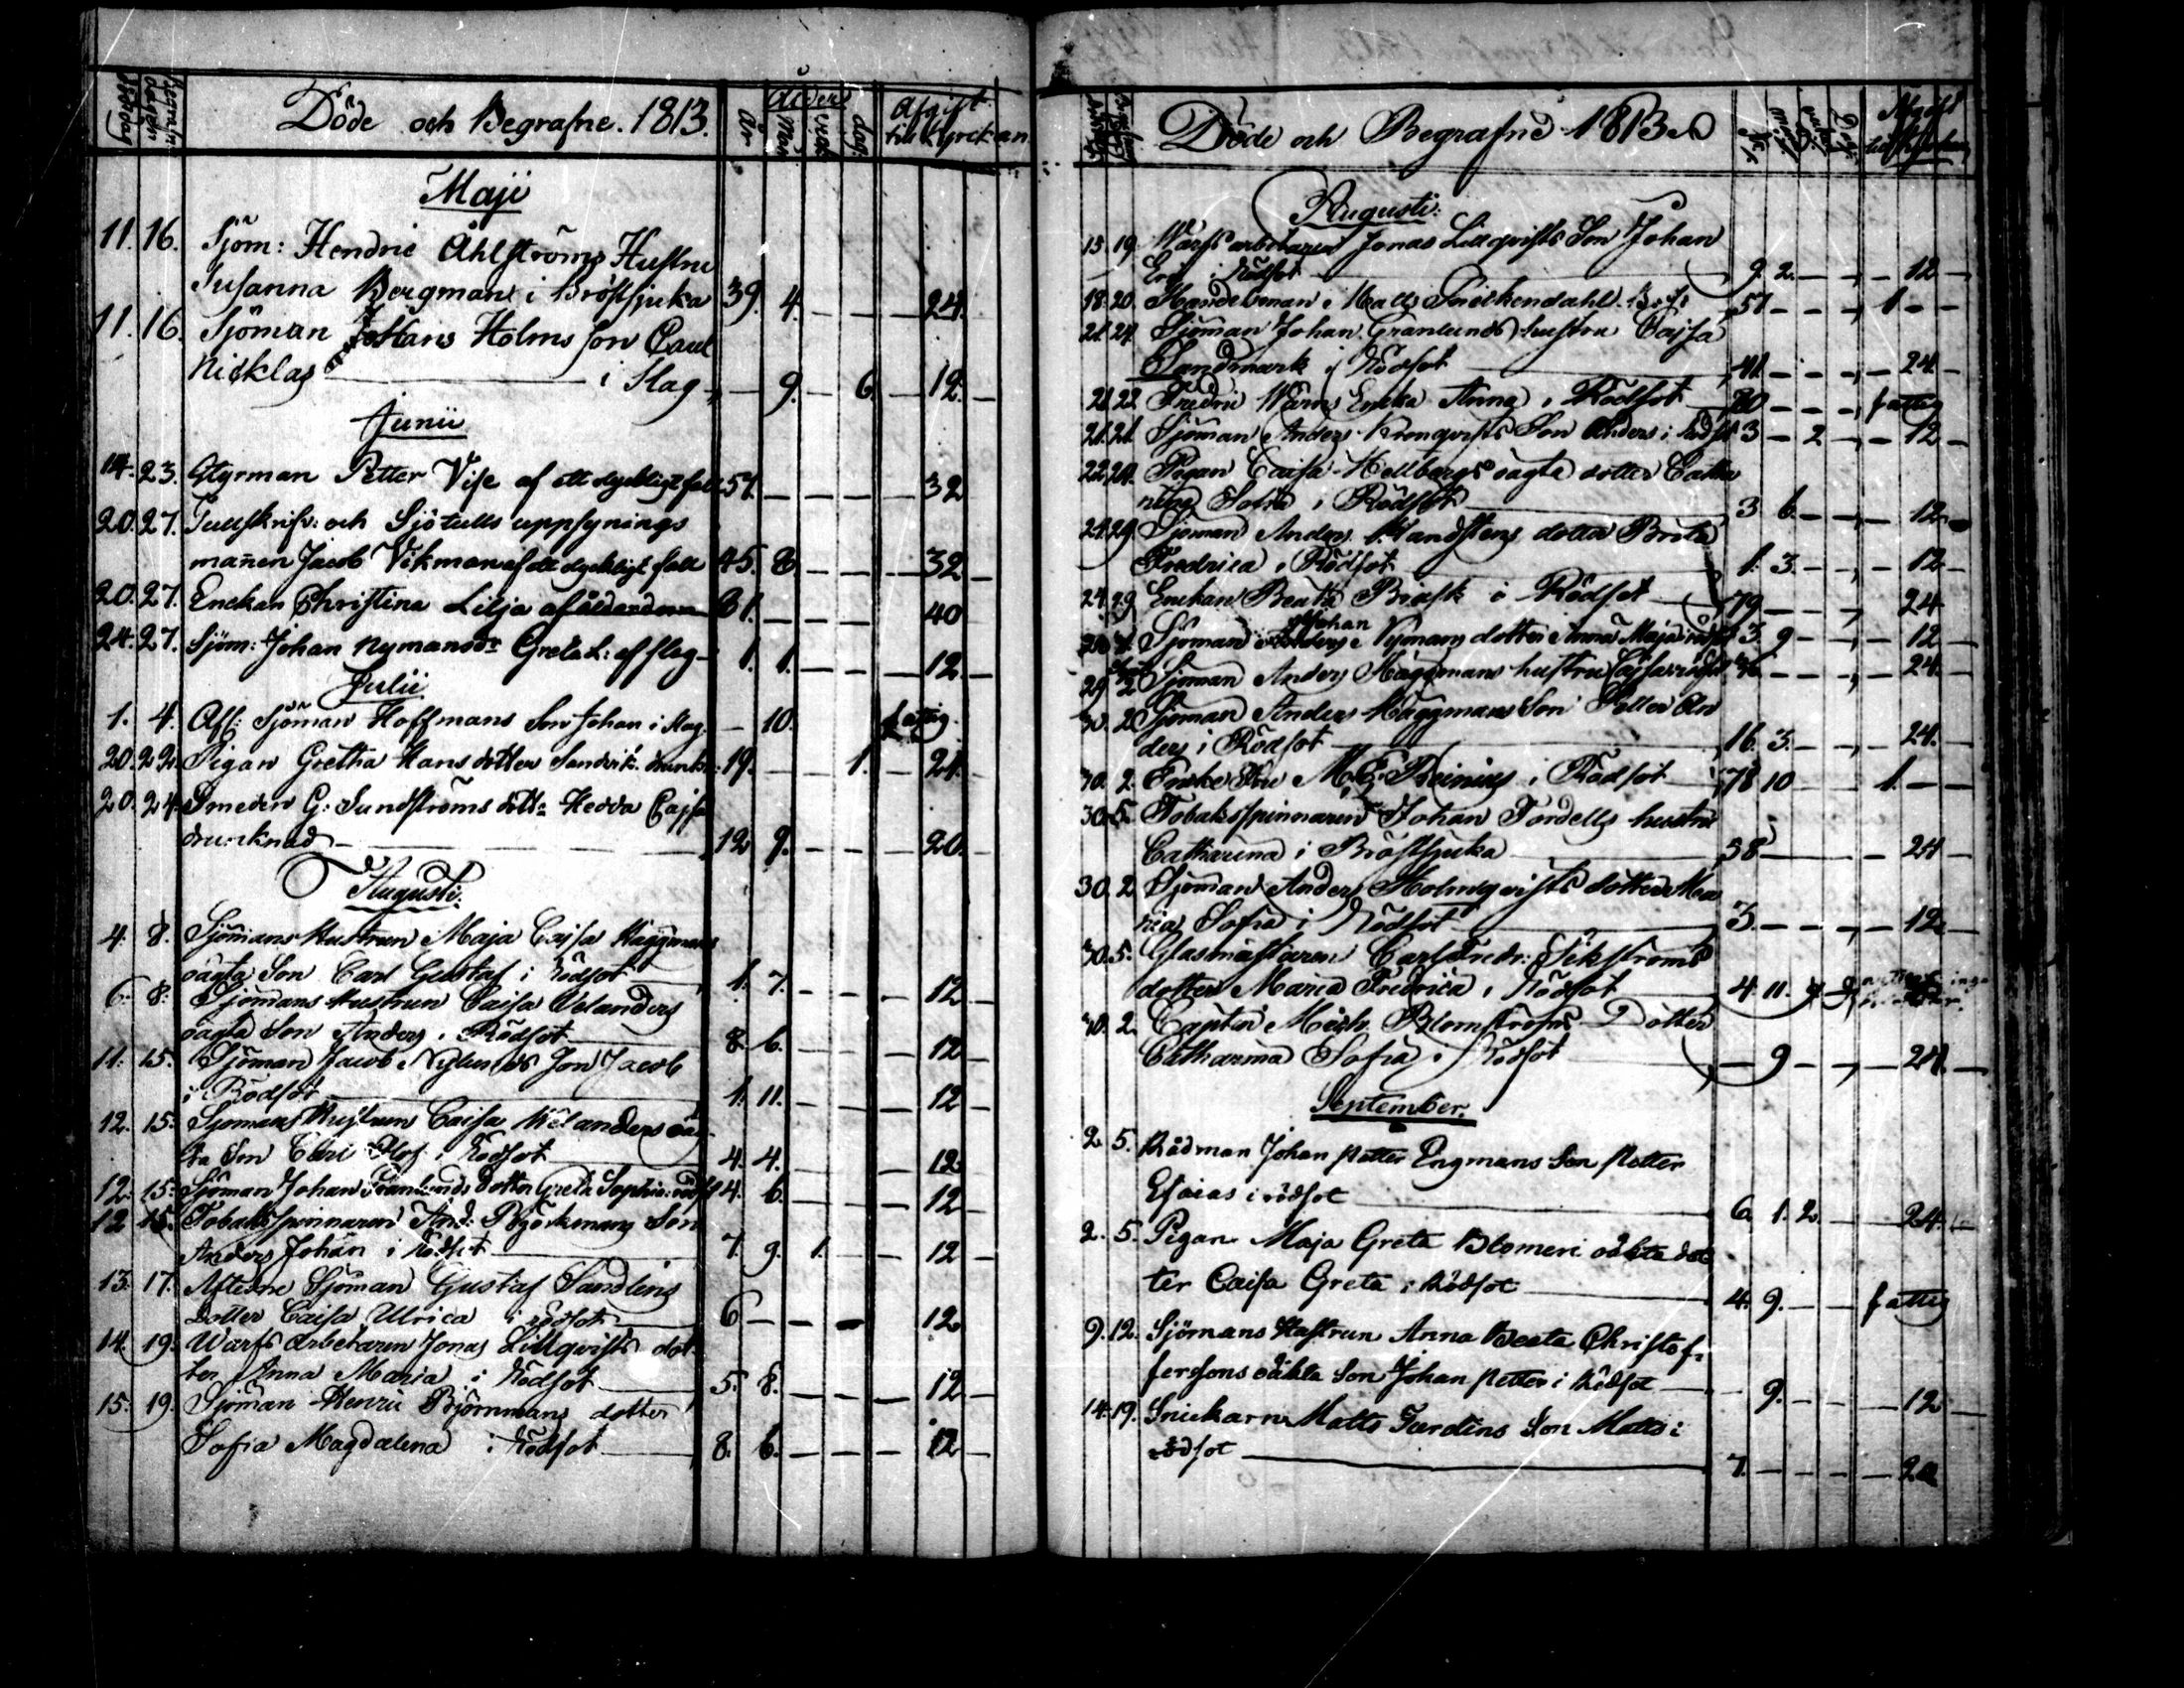 Döde och Begrafne. 1813.
dödsdag
begrafn. dagen
Ålder
år
Mån
veck
dag.
Afgift
till kyrckan
Maji
11. 16. Sjöm: Hendric Åhlströms Hustru
Susanna Bergman i Bröstsjuka 39. 4. — — — 24.
11. 16. Sjöman Johans Holms son Carl
Nicklas — i Slag — 9. — 6. — 12. —
Junii
14. 23. Styrman Petter Vise af ett olyckligt fall 57. — — — — 32
20. 27. Tullskrifv: och Sjötulls uppsynings
mañen Jacob Vikman af ett olyckligt fall 45. 8. — — — 32 —
20. 27. Enckan Christina Lilja af ålderdom 81. — — — — 40
24. 27. Sjöm: Johan Nymans dr Greta L: af slag — 1. 1. — — — 12. —
Julii
1. 4. Afl: Sjöman Hoffmans Son Johan i slag. — 10. fattig.
20. 22. Pigan Gretha Hansdotter Sandvik. drunkn: 19. — — 1. — 24. —
20. 24. Smeden G: Sundströms dott: Hedda Cajsa
drunknad — 12 9. — — — 20. —
Augusti.
4. 8. Sjömans Hustrun Maja Cajsa Häggmans
oägta Son Carl Gustaf i Rödsot 1. 7. — — — 12 —
6. 8. Sjömans Hustrun Caisa Velanders
oägta Son Anders i Rödsot 8. 6. — — — 12 —
11. 15. Sjöman Jacob Nylunds Son Jacob
i Rödsot 1. 11. — — — 12 —
12. 15. Sjömans Hustrun Caisa Velanders oäg
ta Son Carl Olof i Rödsot 4. 4. — — — 12 —
12. 15. Sjöman Johan Granlunds dotter Greta Sophia i rödsot 4. 6. — — — 12 —
12 15. Tobaksspinnaren And: Björkmans Son
Anders Johan i Rödsot 7. 9. 1. — — 12 —
13. 17. Afledne Sjöman Gustaf Sandlins
dotter Caisa Ulrica i rödsot 6 — — — — 12
14. 19. Warfs arbetaren Jonas Lillqvists dot
ter Anna Maria i Rödsot 5. 8. — — — 12 —
15. 19. Sjöman Henric Björnmans dotter
Sofia Magdalena i Rödsot 8. 6. — — — 12 —
Döde och Begrafne 1813
Afgift
till Kyrkan
Augusti.
15 19. Warfs arbetaren Jonas Lillqvists Son Johan
Eric i Rödsot 9. 2. — — — 12 —
18. 20. Handelsman Matts 57 — — — 1. — —
21. 24. Sjöman Johan Granlunds hustru Caisa
Sandmark i Rödsot 41. — — — 24. —
21. 22. Fredric Wärns Encka Anna i Rödsot — — — fattig
21. 21. Sjöman Anders Kronqvists Son Anders i Rödsot 3 — 2 — — 12 —
22. 24. Pigan Caisa Hellbergs oägta dotter Catha
rina Sofia i Rödsot 3 6. — — — 12.
24. 29. Sjöman Anders Sandstens dotter Brita
Fredrica i Rödsot 1. 3. — — — 12
24. 29. Enckan Beata Brask i Rödsot 79 — — — 24
Johan
Sjöman Nymans dotter Anna Maja i rödsot 3. 9 — — — 12 —
29. 2 Sjöman Anders Häggmans hustru Cajsa i rödsot 46 — — — 24. —
30. 2. Sjöman Anders Häggmans Son Petter An
ders i Rödsot 16. 3. — — — 24. —
30. 2. Enke Fru M. E. Reinius i Rödsot 78 10 — — 1. — —
30. 5. Tobaksspinnaren Johan Fordells hustru
Catharina i Bröstsjuka 38 — — — 24 —
30. 2 Sjöman Anders Holmqvists dotter Ma
ria Sofia i Rödsot 3. — — — 12 —
30. 5. Glasmästaren Carl Fredr: Sikströms
dotter Maria Fredrica i Rödsot 4. 11.
30. 2. Capten Mich. Blomströms Dotter
Catharina Sofia i Rödsot — 9 — — 24. —
September.
2. 5. Rådman Johan Petter Engmans Son Petter
Esaias i rödsot 6. 1. 2. — — 24. —
2. 5. Pigan Maja Greta Blomeri oäkta dot
ter Caisa Greta i Rödsot 4. 9. — — fattig
9. 12. Sjömans Hustrun Anna Beata Christof
fersons oäkta Son Johan Petter i Rödsot — 9. — — — 12 —
14. 19. Snickarn Matts Jurdins Son Matts i
rödsot 7. — — — —